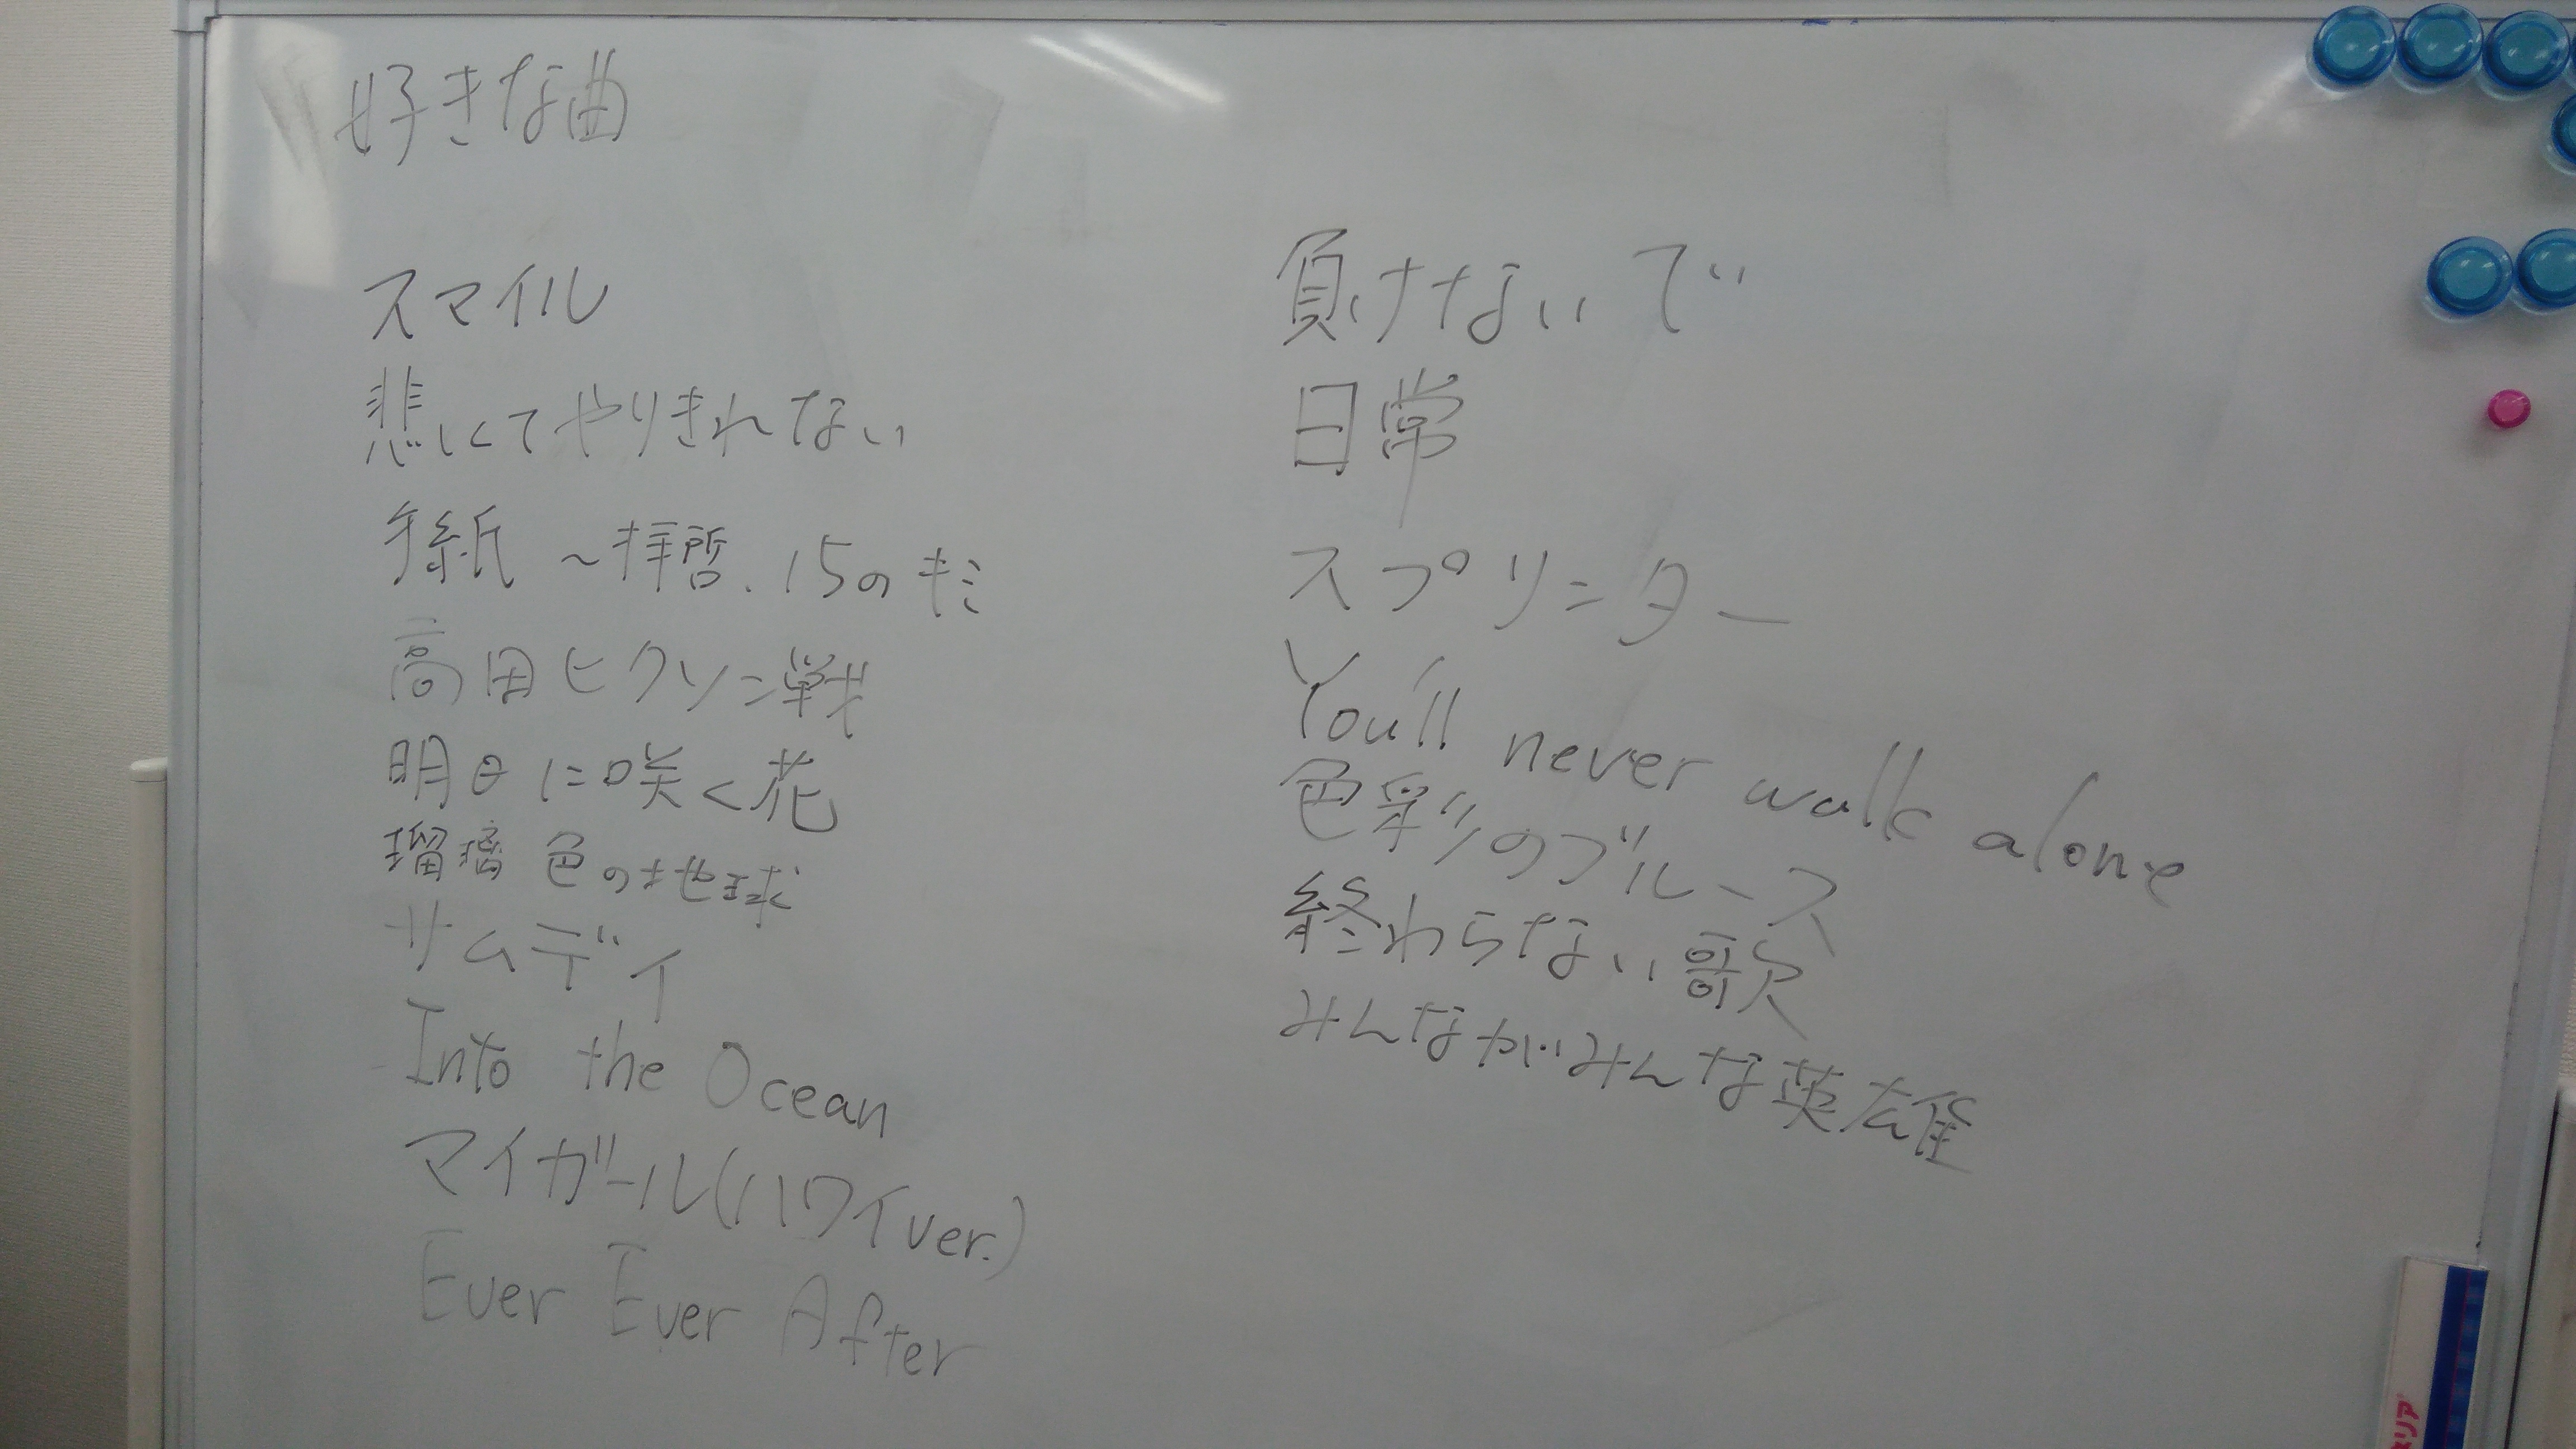 好きな曲
スマイル
悲しくてやりきれない
手紙 ~拝啓、15のキミ
高田ヒクソン戦
明日に咲く花
瑠璃色の地球
サムデイ
Into the Ocean
マイガール(ハワイver.)
Ever Ever After
負けないで
日常
スプリンター
You'll never walk alone
色彩のブルース
終わらない歌
みんながみんな英雄
リア